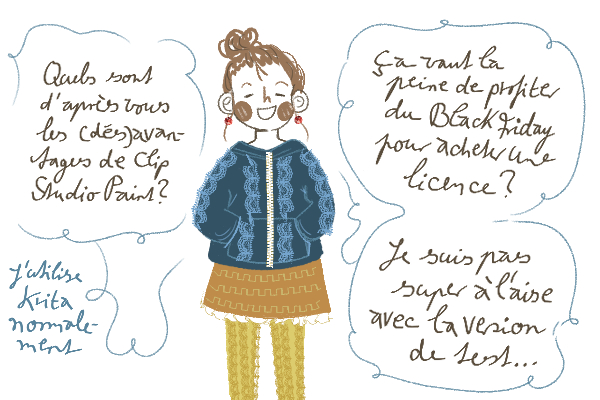 Quels sont
d'après vous
les (dés)avan-
tages de Clip
Studio Paint?
J'utilise
Krita
normale-
ment
Ça vaut la
peine de profiter
du Black Friday
pour acheter une
licence?
Je suis pas
super à l'aise
avec la version
de test...